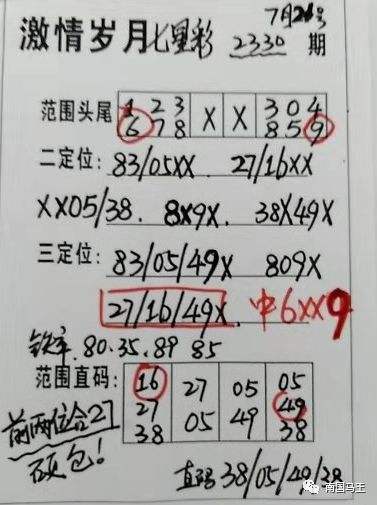 7月24号
激情岁月七星彩 2330 期
范围头尾 1 2 3 X X 3 0 4
6 7 8 8 5 9
二定位: 83/05XX 27/16XX
XX05/38. 8X9X. 38X49X
三定位: 83/05/49X 809X
27/16/49X. 中6XX9
铁率.80.35.89 85
范围直码: 16 27 05 05
27 05 49 49
38 38
前两位合27
硕包!
直码38/05/49/38
南国马王